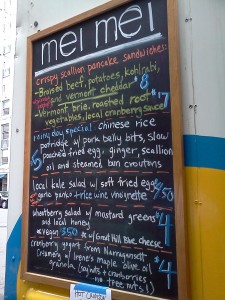 mei mei
crispy scallion pancake sandwiches:
-Braised beef, potatoes, kohlrabi,
and vermont cheddar 8
-Vermont brie, roasted root $17
vegetables, local cranberry sauce
rainy day special: chinese rice
porridge w/ pork belly bits, slow
5 poached fried egg, ginger, scallion
oil and steamed bun croutons
local kale salad w/ soft fried egg,
garlic panko + rice wine vinaigrette $7.50
wheatberry salad w/ mustard greens $4
and local honey
vegan 350 w/ Great Hill Blue cheese
cranberry yogurt from Narragansett
Creamery w/ Irene's maple olive oil $4
granola (oats + cranberries
no tree nuts!)
HOT